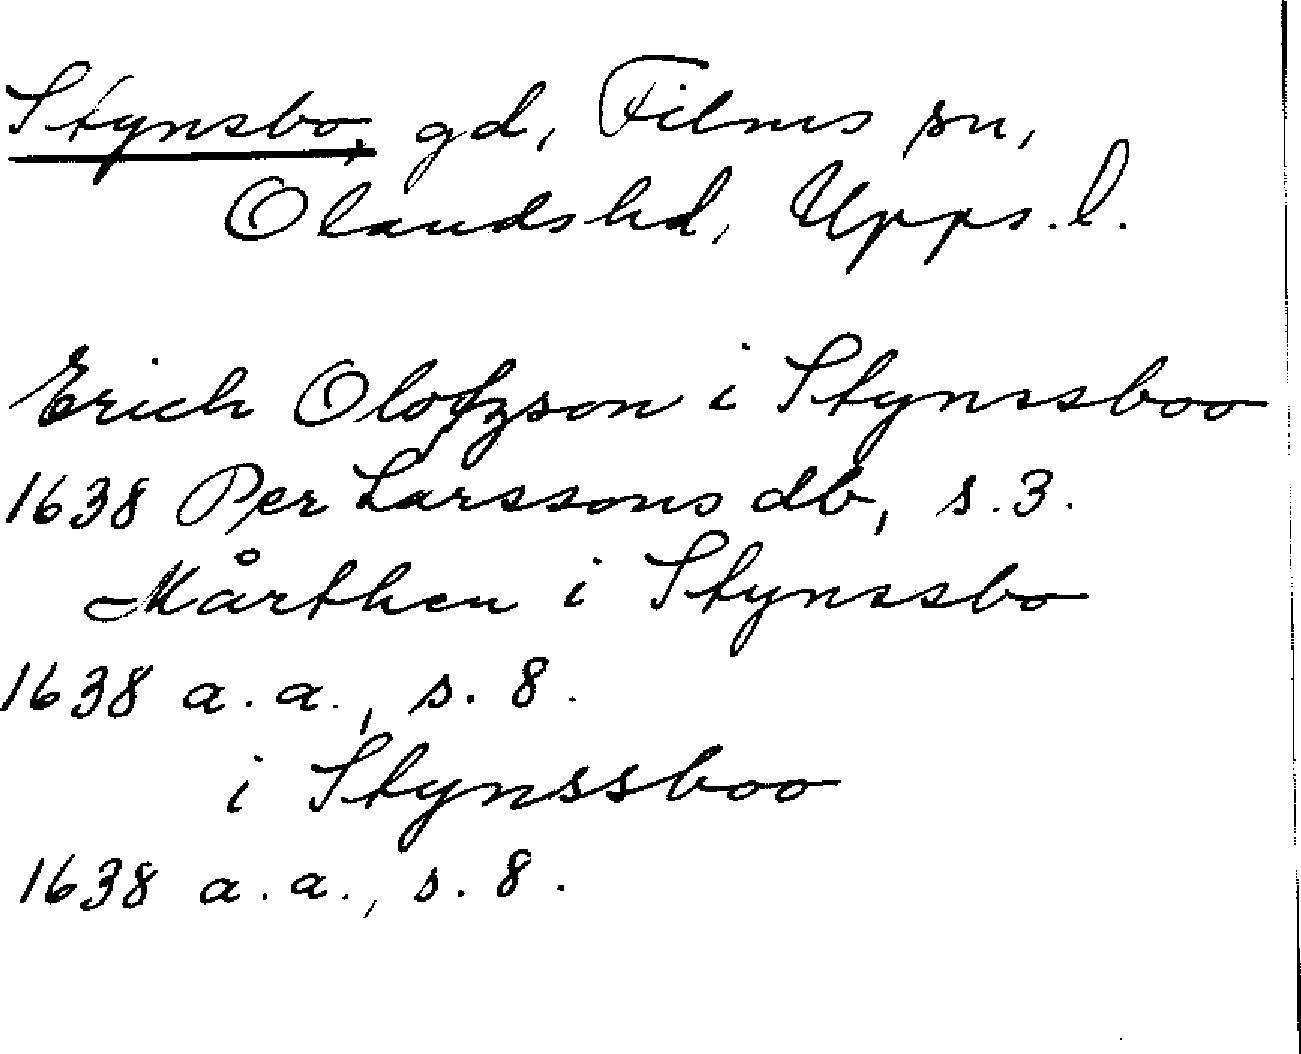 Stynsbo, gd, Films sn,
Olands hd, Upps. l.
Erich Olofzson i Stynssboo
1638 Per Larssons db, s. 3.
Mårthen i Stynssbo
1638 a. a., s. 8.
i Stynssboo
1638 a. a., s. 8.